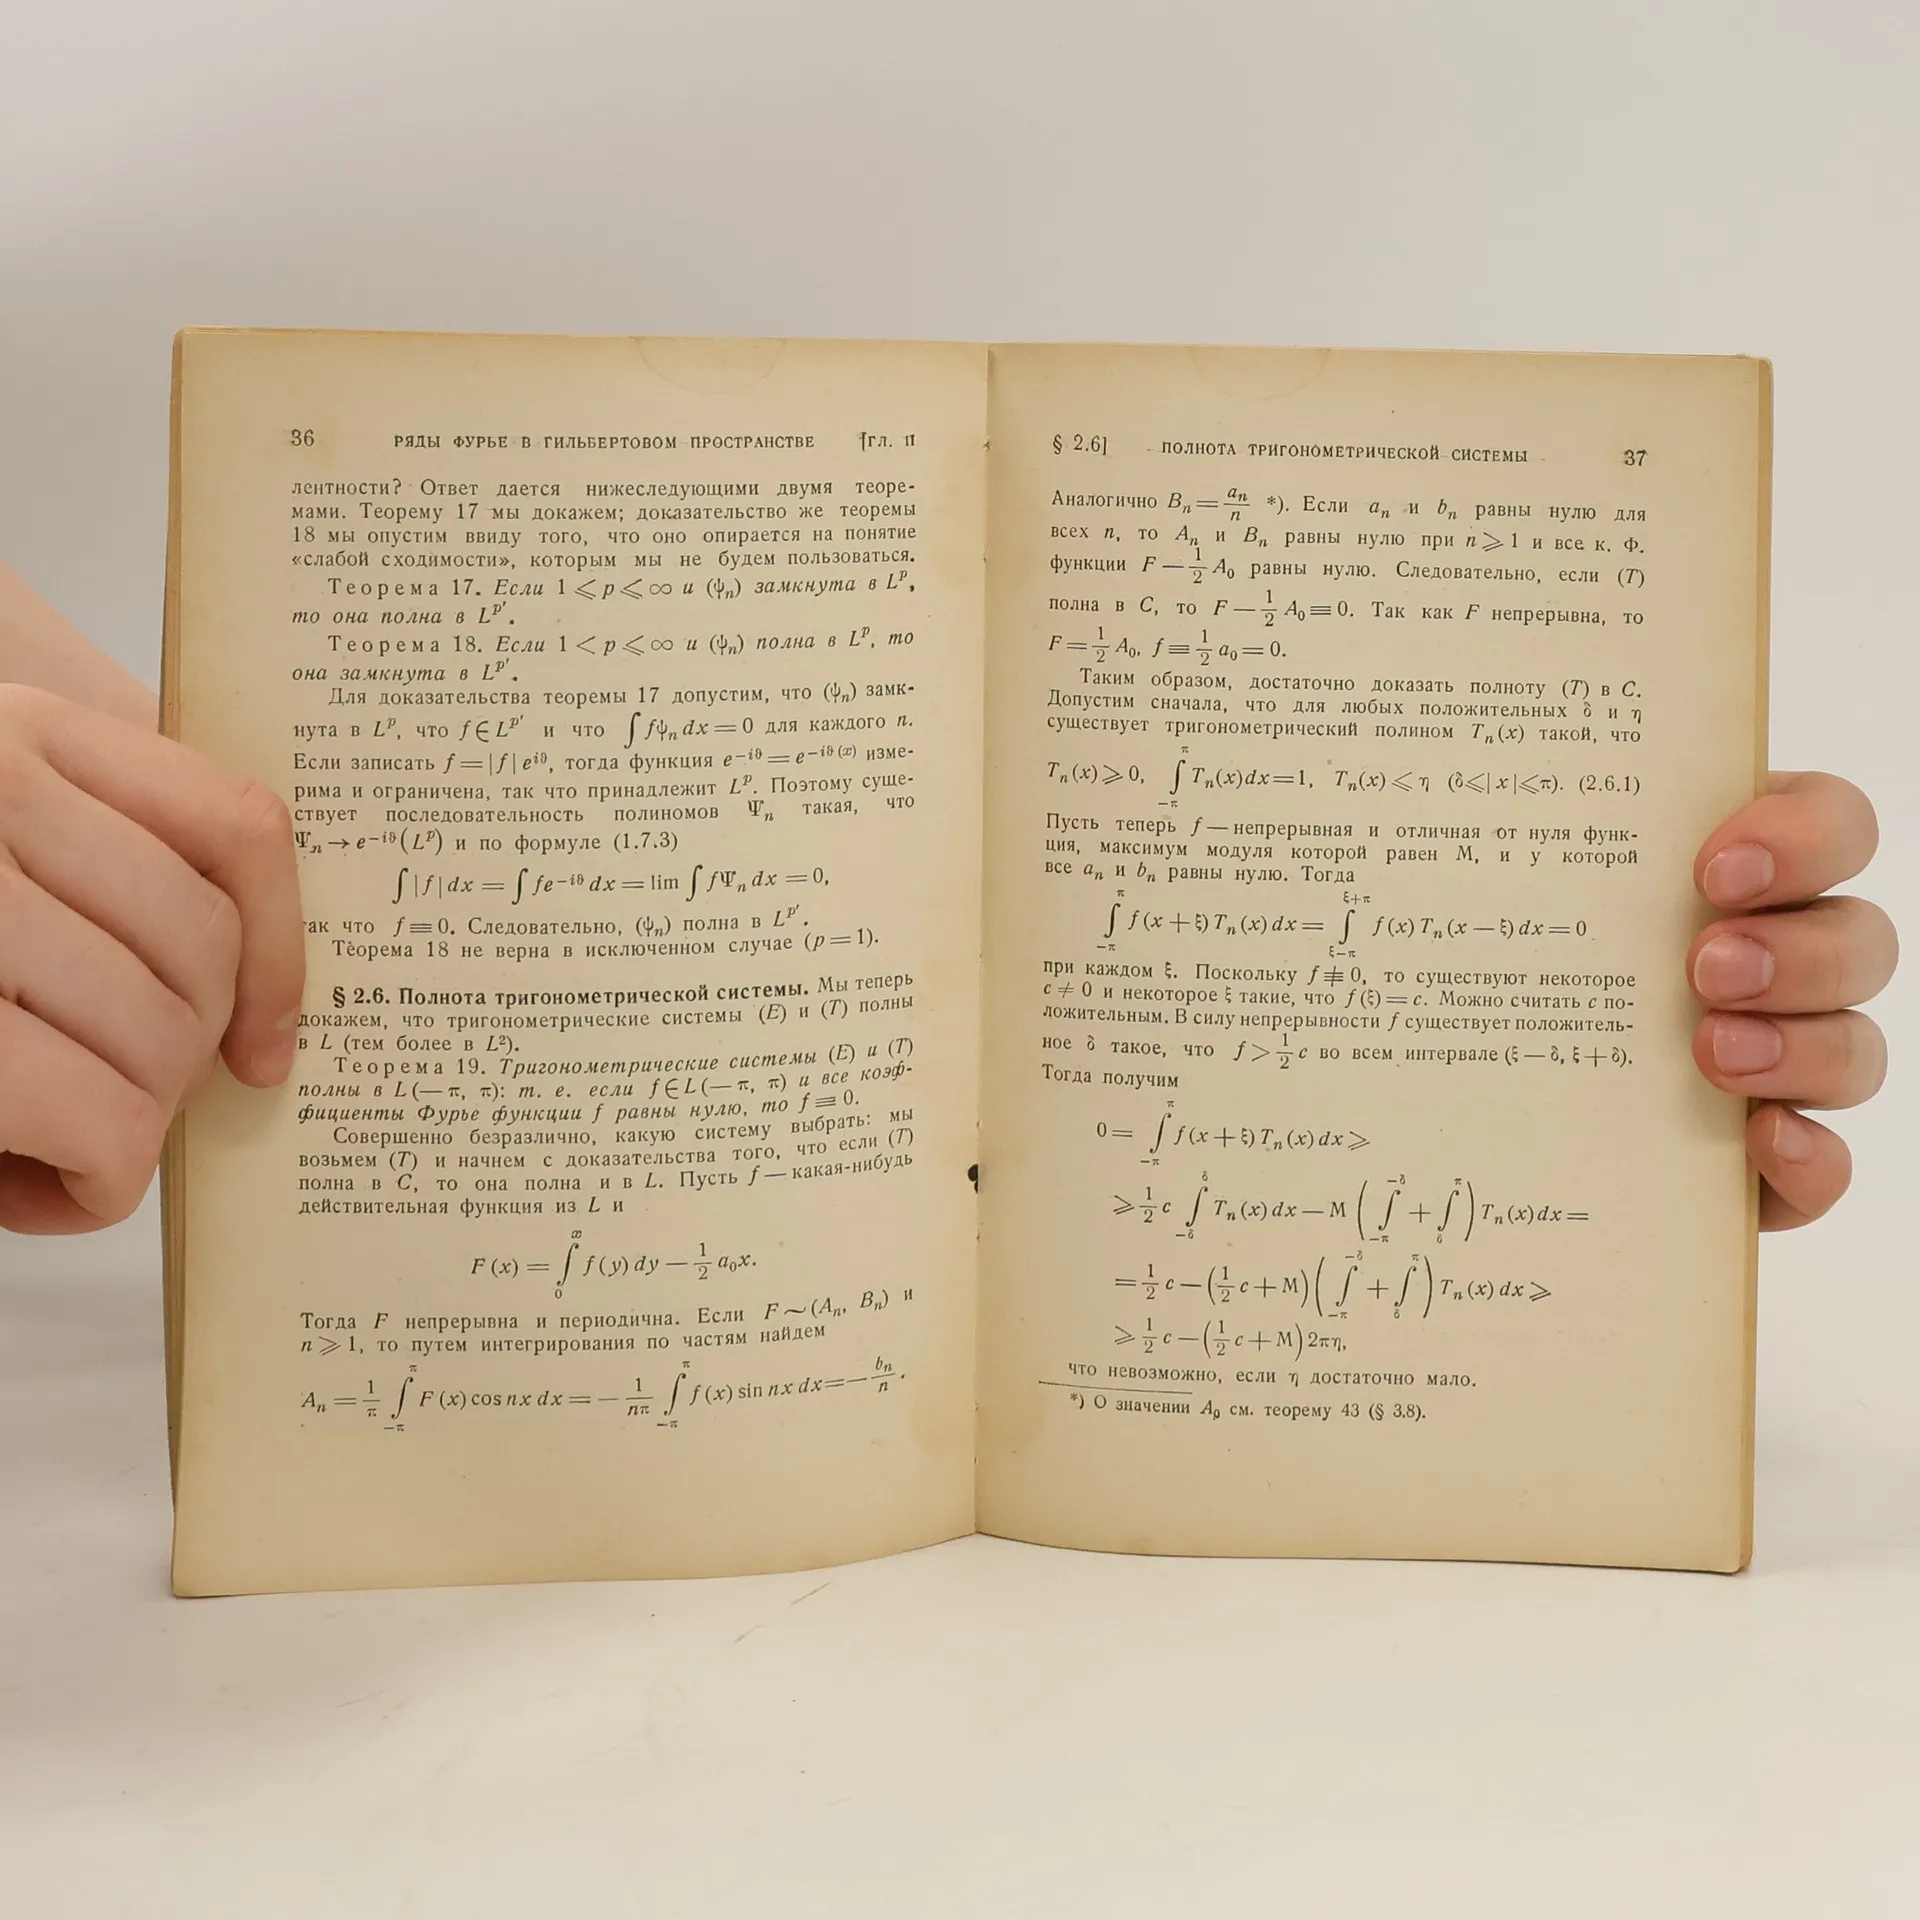 36 РЯДЫ ФУРЬЕ В ГИЛЬБЕРТОВОМ ПРОСТРАНСТВЕ [ГЛ. II
лентности? Ответ дается нижеследующими двумя теоре-
мами. Теорему 17 мы докажем; доказательство же теоремы
18 мы опустим ввиду того, что оно опирается на понятие
«слабой сходимости», которым мы не будем пользоваться.
Теорема 17. Если 1 ⩽ p ⩽ ∞ и (ψₙ) замкнута в Lᵖ,
то она полна в Lᵖ′.
Теорема 18. Если 1 < p ⩽ ∞ и (ψₙ) полна в Lᵖ, то
она замкнута в Lᵖ′.
Для доказательства теоремы 17 допустим, что (ψₙ) замк-
нута в Lᵖ, что f ∈ Lᵖ′ и что ∫ fψₙ dx = 0 для каждого n.
Если записать f = |f| e^{iϑ}, тогда функция e^{−iϑ} = e^{−iϑ(x)} изме-
рима и ограничена, так что принадлежит Lᵖ. Поэтому суще-
ствует последовательность полиномов Ψₙ такая, что
Ψₙ → e^{−iϑ}(Lᵖ) и по формуле (1.7.3)
∫ |f| dx = ∫ fe^{−iϑ} dx = lim ∫ fΨₙ dx = 0,
так что f ≡ 0. Следовательно, (ψₙ) полна в Lᵖ′.
Теорема 18 не верна в исключенном случае (p = 1).
§ 2.6. Полнота тригонометрической системы. Мы теперь
докажем, что тригонометрические системы (E) и (T) полны
в L (тем более в L²).
Теорема 19. Тригонометрические системы (E) и (T)
полны в L (— π, π): т. е. если f ∈ L (— π, π) и все коэф-
фициенты Фурье функции f равны нулю, то f ≡ 0.
Совершенно безразлично, какую систему выбрать: мы
возьмем (T) и начнем с доказательства того, что если (T)
полна в C, то она полна и в L. Пусть f — какая-нибудь
действительная функция из L и
F (x) = ∫₀^{x} f (y) dy — ½ a₀x.
Тогда F непрерывна и периодична. Если F ~ (Aₙ, Bₙ) и
n ⩾ 1, то путем интегрирования по частям найдем
Aₙ = 1/π ∫_{−π}^{π} F (x) cos nx dx = — 1/nπ ∫_{−π}^{π} f (x) sin nx dx = — bₙ/n.
§ 2.6] ПОЛНОТА ТРИГОНОМЕТРИЧЕСКОЙ СИСТЕМЫ 37
Аналогично Bₙ = aₙ/n *). Если aₙ и bₙ равны нулю для
всех n, то Aₙ и Bₙ равны нулю при n ⩾ 1 и все к. Ф.
функции F — ½ A₀ равны нулю. Следовательно, если (T)
полна в C, то F — ½ A₀ ≡ 0. Так как F непрерывна, то
F = ½ A₀, f ≡ ½ a₀ = 0.
Таким образом, достаточно доказать полноту (T) в C.
Допустим сначала, что для любых положительных δ и η
существует тригонометрический полином Tₙ(x) такой, что
Tₙ(x) ⩾ 0, ∫_{−π}^{π} Tₙ(x)dx = 1, Tₙ(x) ⩽ η (δ ⩽ | x | ⩽ π). (2.6.1)
Пусть теперь f — непрерывная и отличная от нуля функ-
ция, максимум модуля которой равен M, и у которой
все aₙ и bₙ равны нулю. Тогда
∫_{−π}^{π} f (x + ξ) Tₙ (x) dx = ∫_{ξ−π}^{ξ+π} f (x) Tₙ (x — ξ) dx = 0
при каждом ξ. Поскольку f ≢ 0, то существуют некоторое
c ≠ 0 и некоторое ξ такие, что f (ξ) = c. Можно считать c по-
ложительным. В силу непрерывности f существует положитель-
ное δ такое, что f > ½ c во всем интервале (ξ — δ, ξ + δ).
Тогда получим
0 = ∫_{−π}^{π} f (x + ξ) Tₙ (x) dx ⩾
⩾ ½ c ∫_{−δ}^{δ} Tₙ (x) dx — M ( ∫_{−π}^{−δ} + ∫_{δ}^{π} ) Tₙ (x) dx =
= ½ c — (½ c + M) ( ∫_{−π}^{−δ} + ∫_{δ}^{π} ) Tₙ (x) dx ⩾
⩾ ½ c — (½ c + M) 2πη,
что невозможно, если η достаточно мало.
*) О значении A₀ см. теорему 43 (§ 3.8).